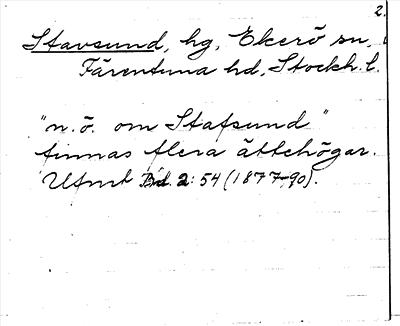 2.
Stavsund, hg, Ekerö sn,
Färentuna hd, Stockh. l.
"n.ö. om Stafsund"
finnas flera ättehögar.
Utmt Bd. 2:54 (1877-90).